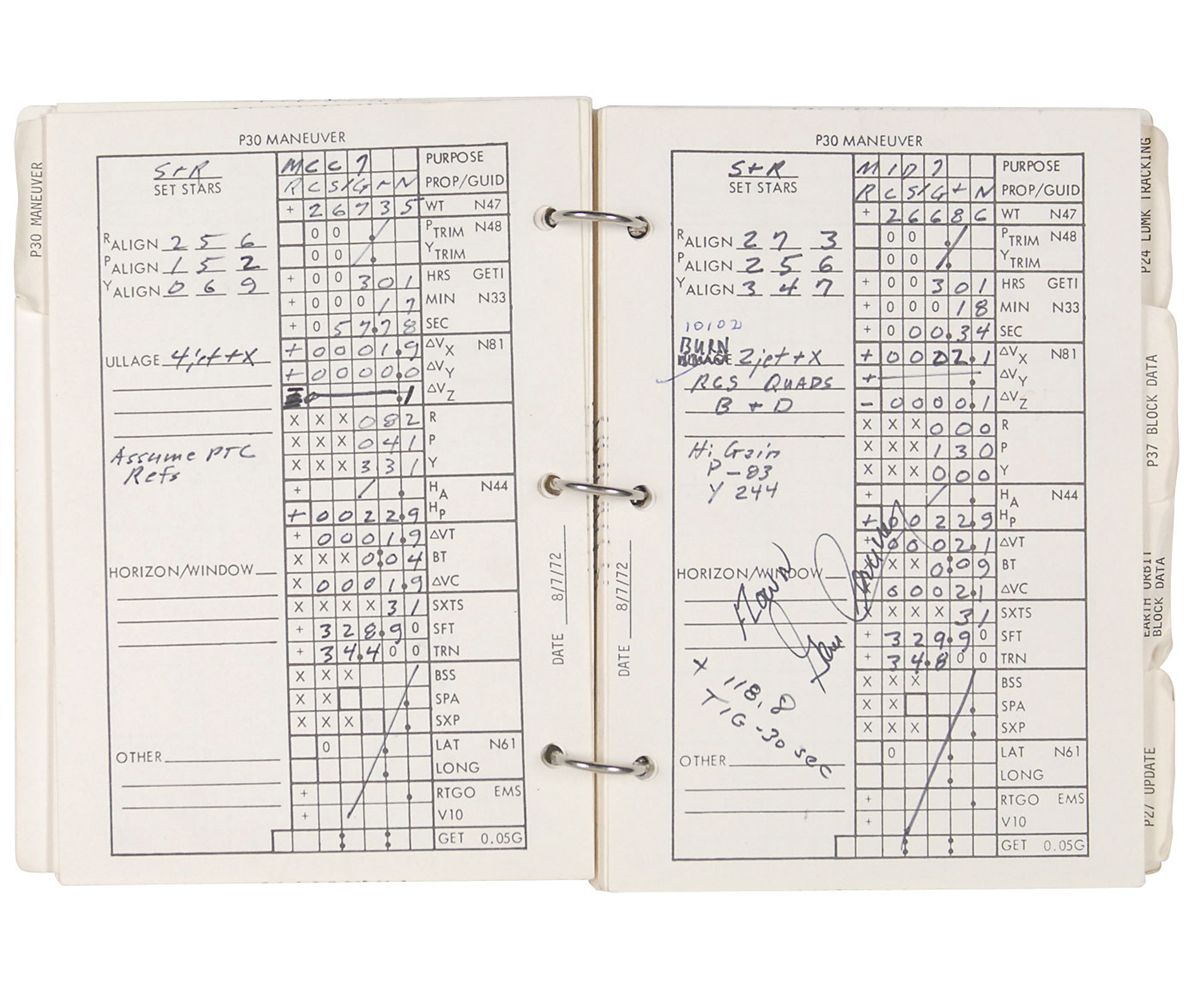 P30 MANEUVER
P30 MANEUVER
S+R
SET STARS
RALIGN 2 5 6
PALIGN 1 5 2
YALIGN 0 6 9
ULLAGE 4jet+X
Assume PTC
Refs
HORIZON/WINDOW
OTHER
M C C 7 PURPOSE
R C S/G+N PROP/GUID
+ 2 6 7 3 5 WT N47
0 0 PTRIM N48
0 0 YTRIM
+ 0 0 3 0 1 HRS GETI
+ 0 0 0 1 7 MIN N33
+ 0 5 7.7 8 SEC
+ 0 0 0 1.9 ΔVX N81
+ 0 0 0 0.0 ΔVY
0 .1 ΔVZ
X X X 0 8 2 R
X X X 0 4 1 P
X X X 3 3 1 Y
+ HA N44
+ 0 0 2 2.9 HP
+ 0 0 0 1.9 ΔVT
X X X 0:0 4 BT
X 0 0 0 1.9 ΔVC
X X X X 3 1 SXTS
+ 3 2 8.9 0 SFT
+ 3 4.4 0 0 TRN
X X X BSS
X X SPA
X X X SXP
0 LAT N61
LONG
+ RTGO EMS
+ V10
GET 0.05G
DATE 8/7/72
P30 MANEUVER
S+R
SET STARS
RALIGN 2 7 3
PALIGN 2 5 6
YALIGN 3 4 7
10102
BURN
2jet+X
RCS QUADS
B + D
Hi Gain
P -83
Y 244
HORIZON/WINDOW
Flown
Gene Cernan
X 118.8
TIG -30 sec
OTHER
M I D 7 PURPOSE
R C S/G + N PROP/GUID
+ 2 6 6 8 6 WT N47
0 0 PTRIM N48
0 0 YTRIM
+ 0 0 3 0 1 HRS GETI
+ 0 0 0 1 8 MIN N33
+ 0 0 0.3 4 SEC
+ 0 0 0 2.1 ΔVX N81
+ ΔVY
- 0 0 0 0.1 ΔVZ
X X X 0 0 0 R
X X X 1 3 0 P
X X X 0 0 0 Y
+ HA N44
+ 0 0 2 2.9 HP
0 0 0 2.1 ΔVT
X X 0:0 9 BT
0 0 0 2.1 ΔVC
X X X 3 1 SXTS
+ 3 2 9.9 0 SFT
+ 3 4.8 0 0 TRN
X X X BSS
X X SPA
X X X SXP
0 LAT N61
LONG
+ RTGO EMS
+ V10
GET 0.05G
DATE 8/7/72
P24 LDMK TRACKING
P37 BLOCK DATA
EARTH ORBIT
BLOCK DATA
P27 UPDATE